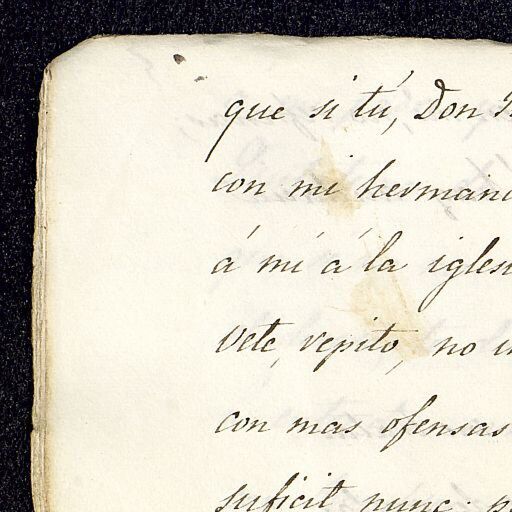 que si tú, Don
con mi
á mí á la
vete, repito, no
con mas ofensas
suficit nunc.